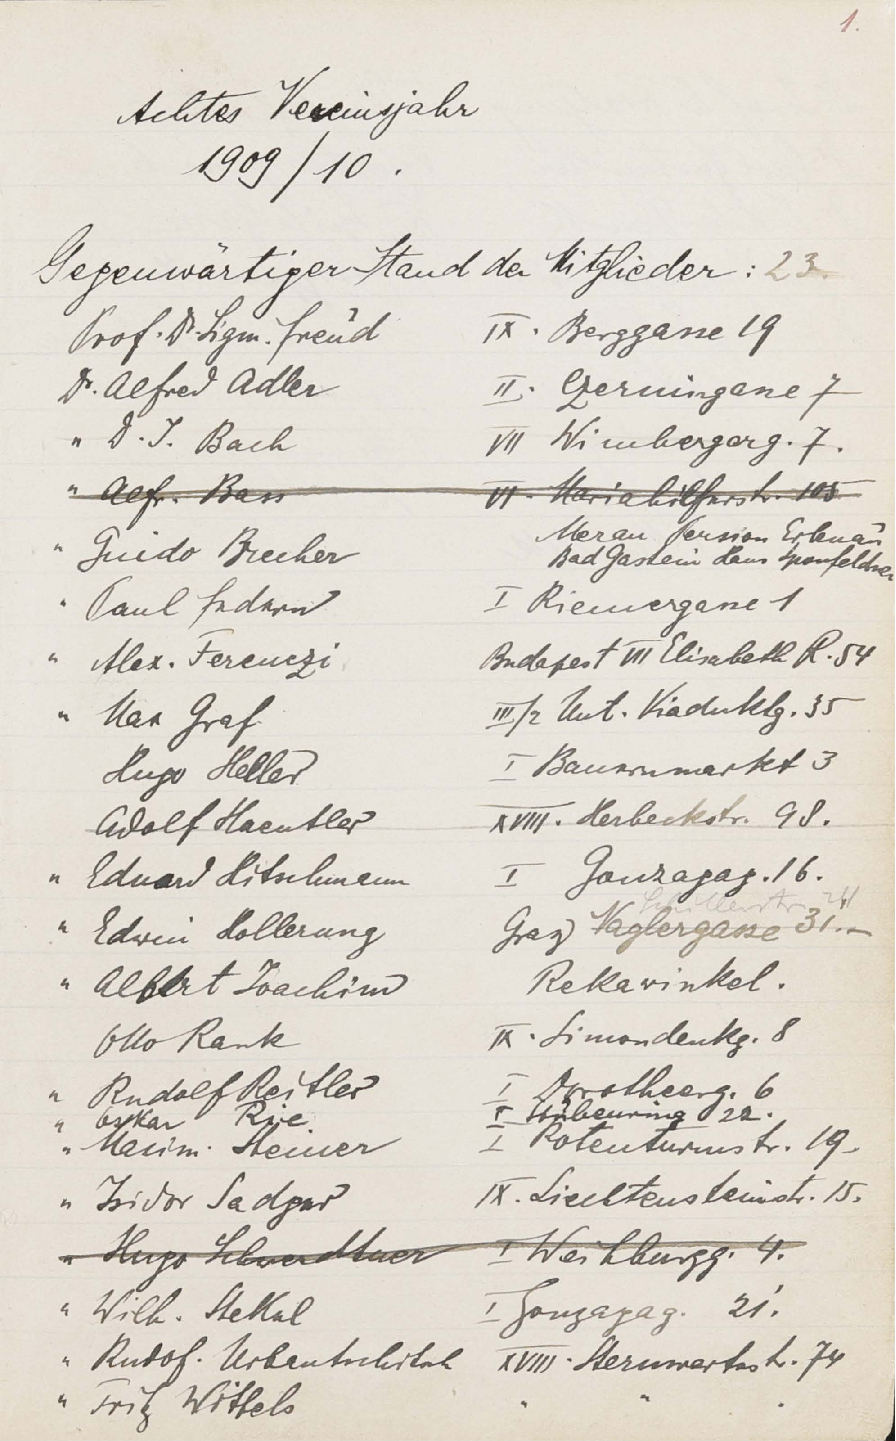 1.
Achtes Vereinsjahr
1909/10.
Gegenwärtiger Stand der Mitglieder: 23.
Prof. Dr. Sigm. Freud IX. Berggasse 19
Dr. Alfred Adler II. Czerningasse 7
" D. J. Bach VII Wimbergerg. 7.
" Alfr. Bass VI. Mariahilferstr. 105
" Guido Brecher Meran Pension Erlenau
Bad Gastein Haus
" Paul Federn I Riemergasse 1
" Alex. Ferenczi Budapest VII Elisabeth R. 54
" Max Graf III/2 Unt. Viaduktg. 35
Hugo Heller I Bauernmarkt 3
Adolf Haeutler XVIII. Herbeckstr. 98.
" Eduard Hitschmann I Gonzagag. 16.
Schillerstr. 24
" Edwin Hollerung Graz Naglergasse 31.
" Albert Joachim Rekawinkel.
Otto Rank IX. Simondenkg. 8
" Rudolf Reitler I Dorotheerg. 6
" Oskar Rie I Stubenring 22.
" Maxim. Steiner I Rotenturmstr. 19
" Isidor Sadger IX. Liechtensteinstr. 15.
" Hugo Schwerdtner I Weihburgg. 4.
" Wilh. Stekel I Gonzagag. 21.
" Rudof. Urbantschitsch XVIII. Sternwartestr. 74
" Fritz Wittels " " .